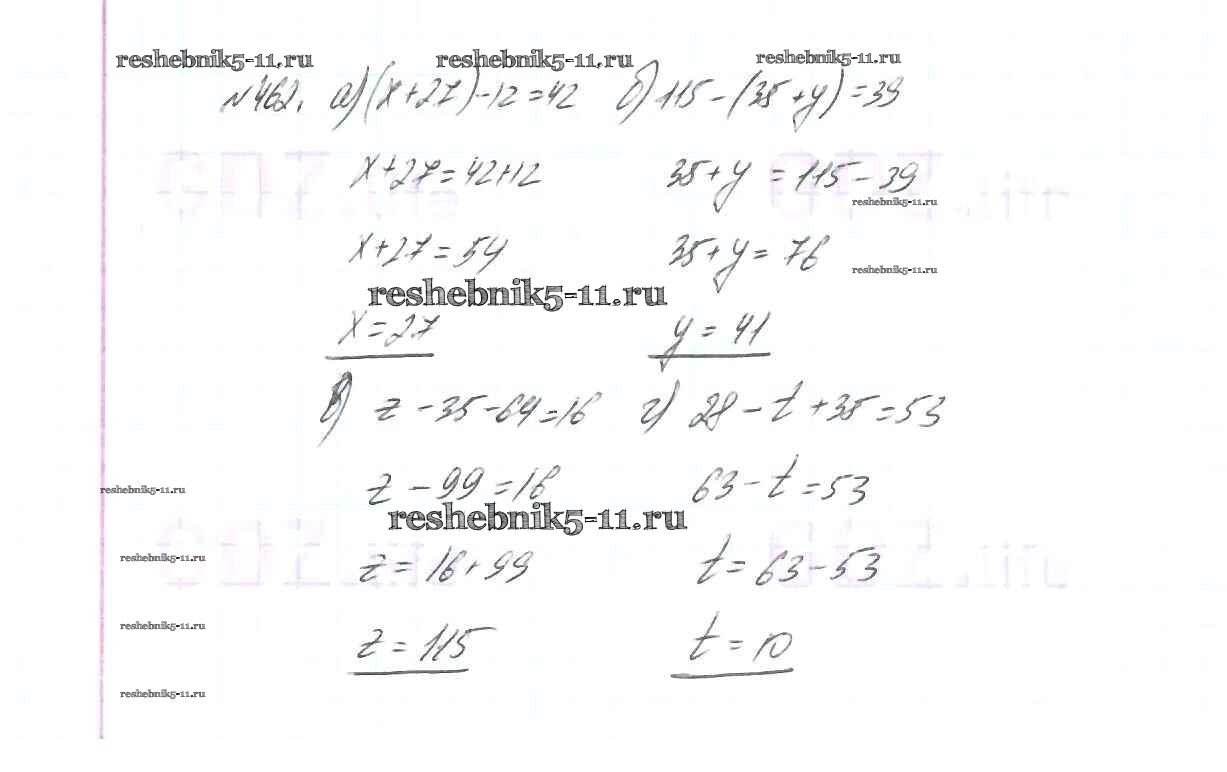 reshebnik5-11.ru reshebnik5-11.ru reshebnik5-11.ru
№462. а) (x+27)-12=42 б) 115-(35+y)=39
x+27=42+12 35+y=115-39
reshebnik5-11.ru
x+27=54 35+y=76
reshebnik5-11.ru
reshebnik5-11.ru
x=27 y=41
в) z-35-64=16 г) 28-t+35=53
z-99=16 63-t=53
reshebnik5-11.ru
reshebnik5-11.ru
z=16+99 t=63-53
reshebnik5-11.ru
reshebnik5-11.ru
z=115 t=10
reshebnik5-11.ru